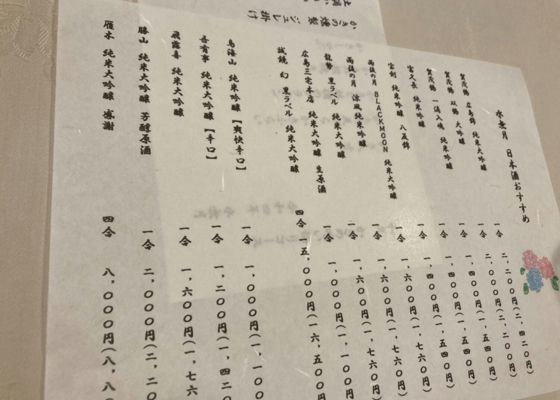 水無月 日本酒おすすめ
賀茂鶴 広島錦 純米大吟醸 一合 二、二〇〇円(二、四二〇円)
賀茂鶴 双鶴 大吟醸 一合 二、〇〇〇円(二、二〇〇円)
賀茂鶴 一滴入魂 純米吟醸 一合 一、四〇〇円(一、五四〇円)
富久長 純米吟醸 一合 一、四〇〇円(一、五四〇円)
宝剣 純米吟醸 八反錦 一合 一、四〇〇円(一、五四〇円)
雨後の月 BLACKMOON 純米大吟醸 一合 一、六〇〇円(一、七六〇円)
雨後の月 涼風純米吟醸 一合 一、六〇〇円(一、七六〇円)
龍勢 黒ラベル 純米大吟醸 一合 一、六〇〇円(一、七六〇円)
広島三宅本店 純米大吟醸 生原酒 一合 一、〇〇〇円(一、一〇〇円
誠鏡 幻 黒ラベル 純米大吟醸 四合 一五、〇〇〇円(一六、五〇〇
鳥海山 純米吟醸【爽快辛口】 一合 一、〇〇〇円(一、一〇〇
喜有事 純米吟醸【辛口】 一合 一、二〇〇円(一、四二〇
雁露喜 純米大吟醸 一合 一、六〇〇円(一、七六
勝山 純米大吟醸 芳醇原酒 一合 二、〇〇〇円(二、二〇
雁木 純米大吟醸 感謝 四合 八、〇〇〇円(八、八〇
かきの燻製 ジュレ掛け